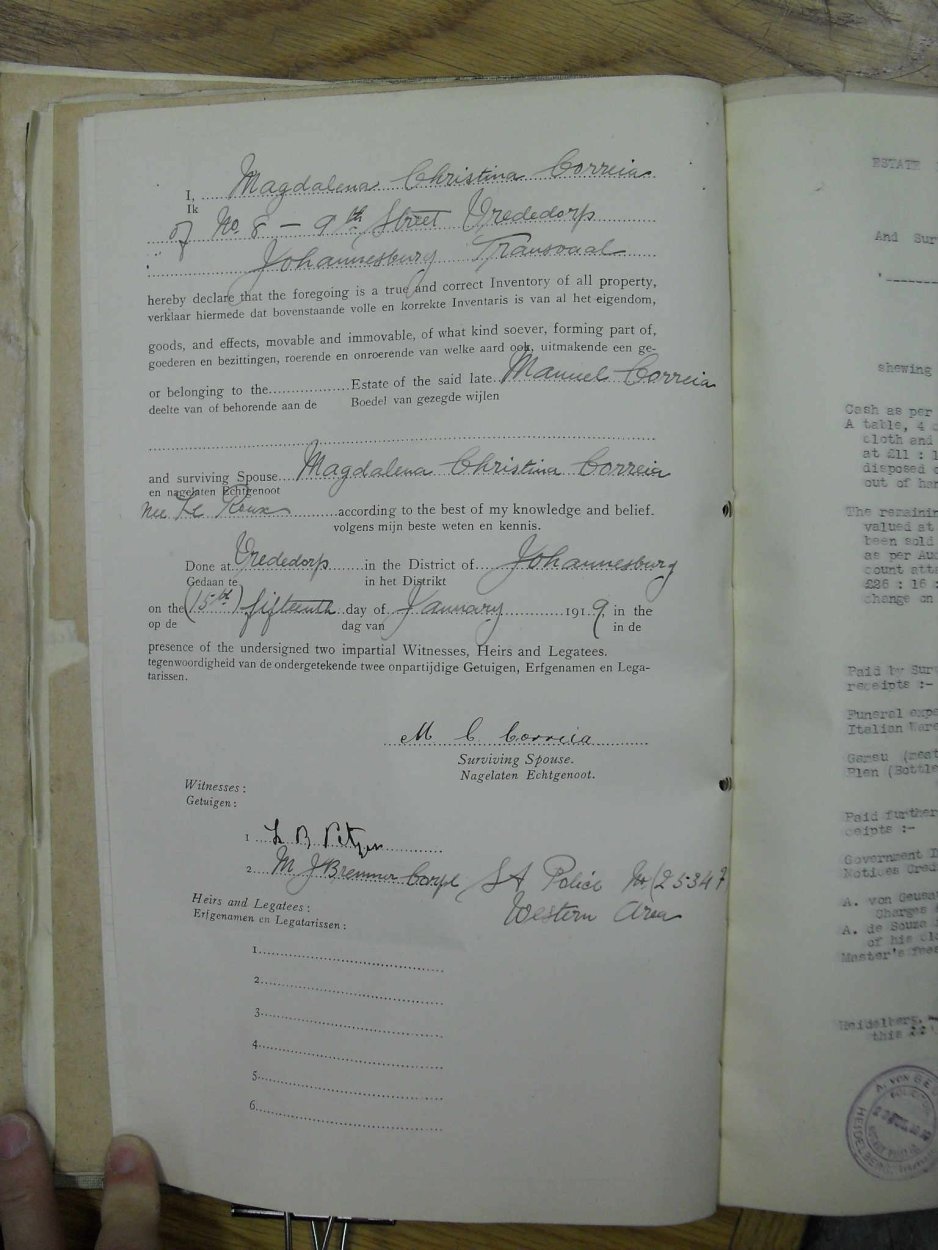 I, Magdalena Christina Correia
Ik
of No. 8 – 9th Street Vrededorp
Johannesburg Transvaal
hereby declare that the foregoing is a true and correct Inventory of all property,
verklaar hiermede dat bovenstaande volle en korrekte Inventaris is van al het eigendom,
goods, and effects, movable and immovable, of what kind soever, forming part of,
goederen en bezittingen, roerende en onroerende van welke aard ook, uitmakende een ge-
or belonging to the Estate of the said late Manuel Correia
deelte van of behorende aan de Boedel van gezegde wijlen
and surviving Spouse Magdalena Christina Correia
en nagelaten Echtgenoot
nee Le Roux according to the best of my knowledge and belief.
volgens mijn beste weten en kennis.
Done at Vrededorp in the District of Johannesburg
Gedaan te in het Distrikt
on the (15th) fifteenth day of January 1919 in the
op de dag van in de
presence of the undersigned two impartial Witnesses, Heirs and Legatees.
tegenwoordigheid van de ondergetekende twee onpartijdige Getuigen, Erfgenamen en Lega-
tarissen.
M C Correia
Surviving Spouse.
Nagelaten Echtgenoot.
Witnesses:
Getuigen:
1
2. M J Bremner Corpl SA Police No (25347
Western Area
Heirs and Legatees:
Erfgenamen en Legatarissen:
1.
2.
3.
4.
5.
6.
ESTATE
And Sur
shewing
Cash as per
A table, 4
cloth and
at £11 : 1
disposed o
out of han
The remainin
valued at
been sold
as per Auc
count atta
£26 : 16 :
change on
Paid by Surv
receipts :-
Funeral expe
Italian Ware
(Bottle
Paid further
ceipts :-
Government
Notices Cred
A. von Geusa
Charges
A. de Souza
of his
Master's fees
Heidelberg,
this 22
A. VON GEU
HEIDELBERG,